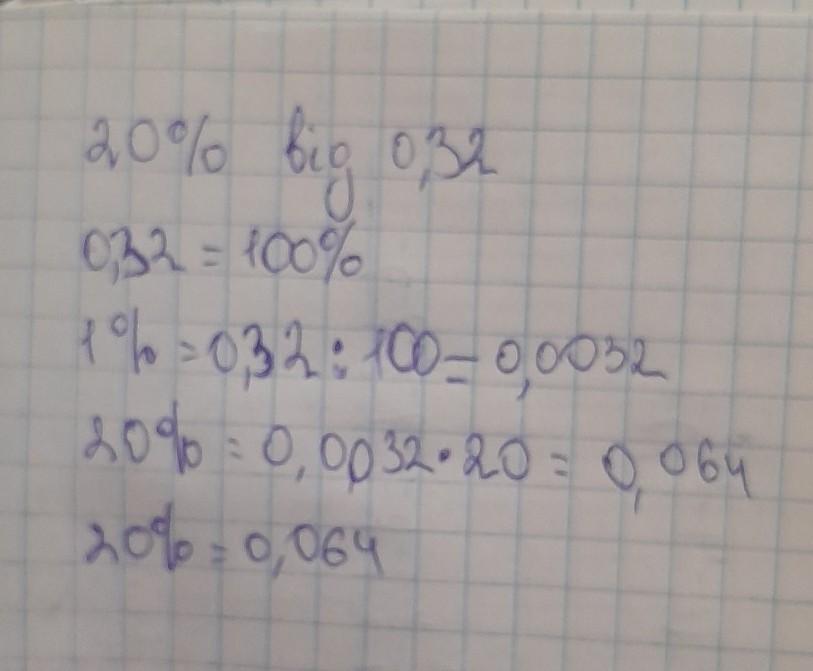 20% від 0,32
0,32 = 100%
1% = 0,32 : 100 = 0,0032
20% = 0,0032 · 20 = 0,064
20% = 0,064